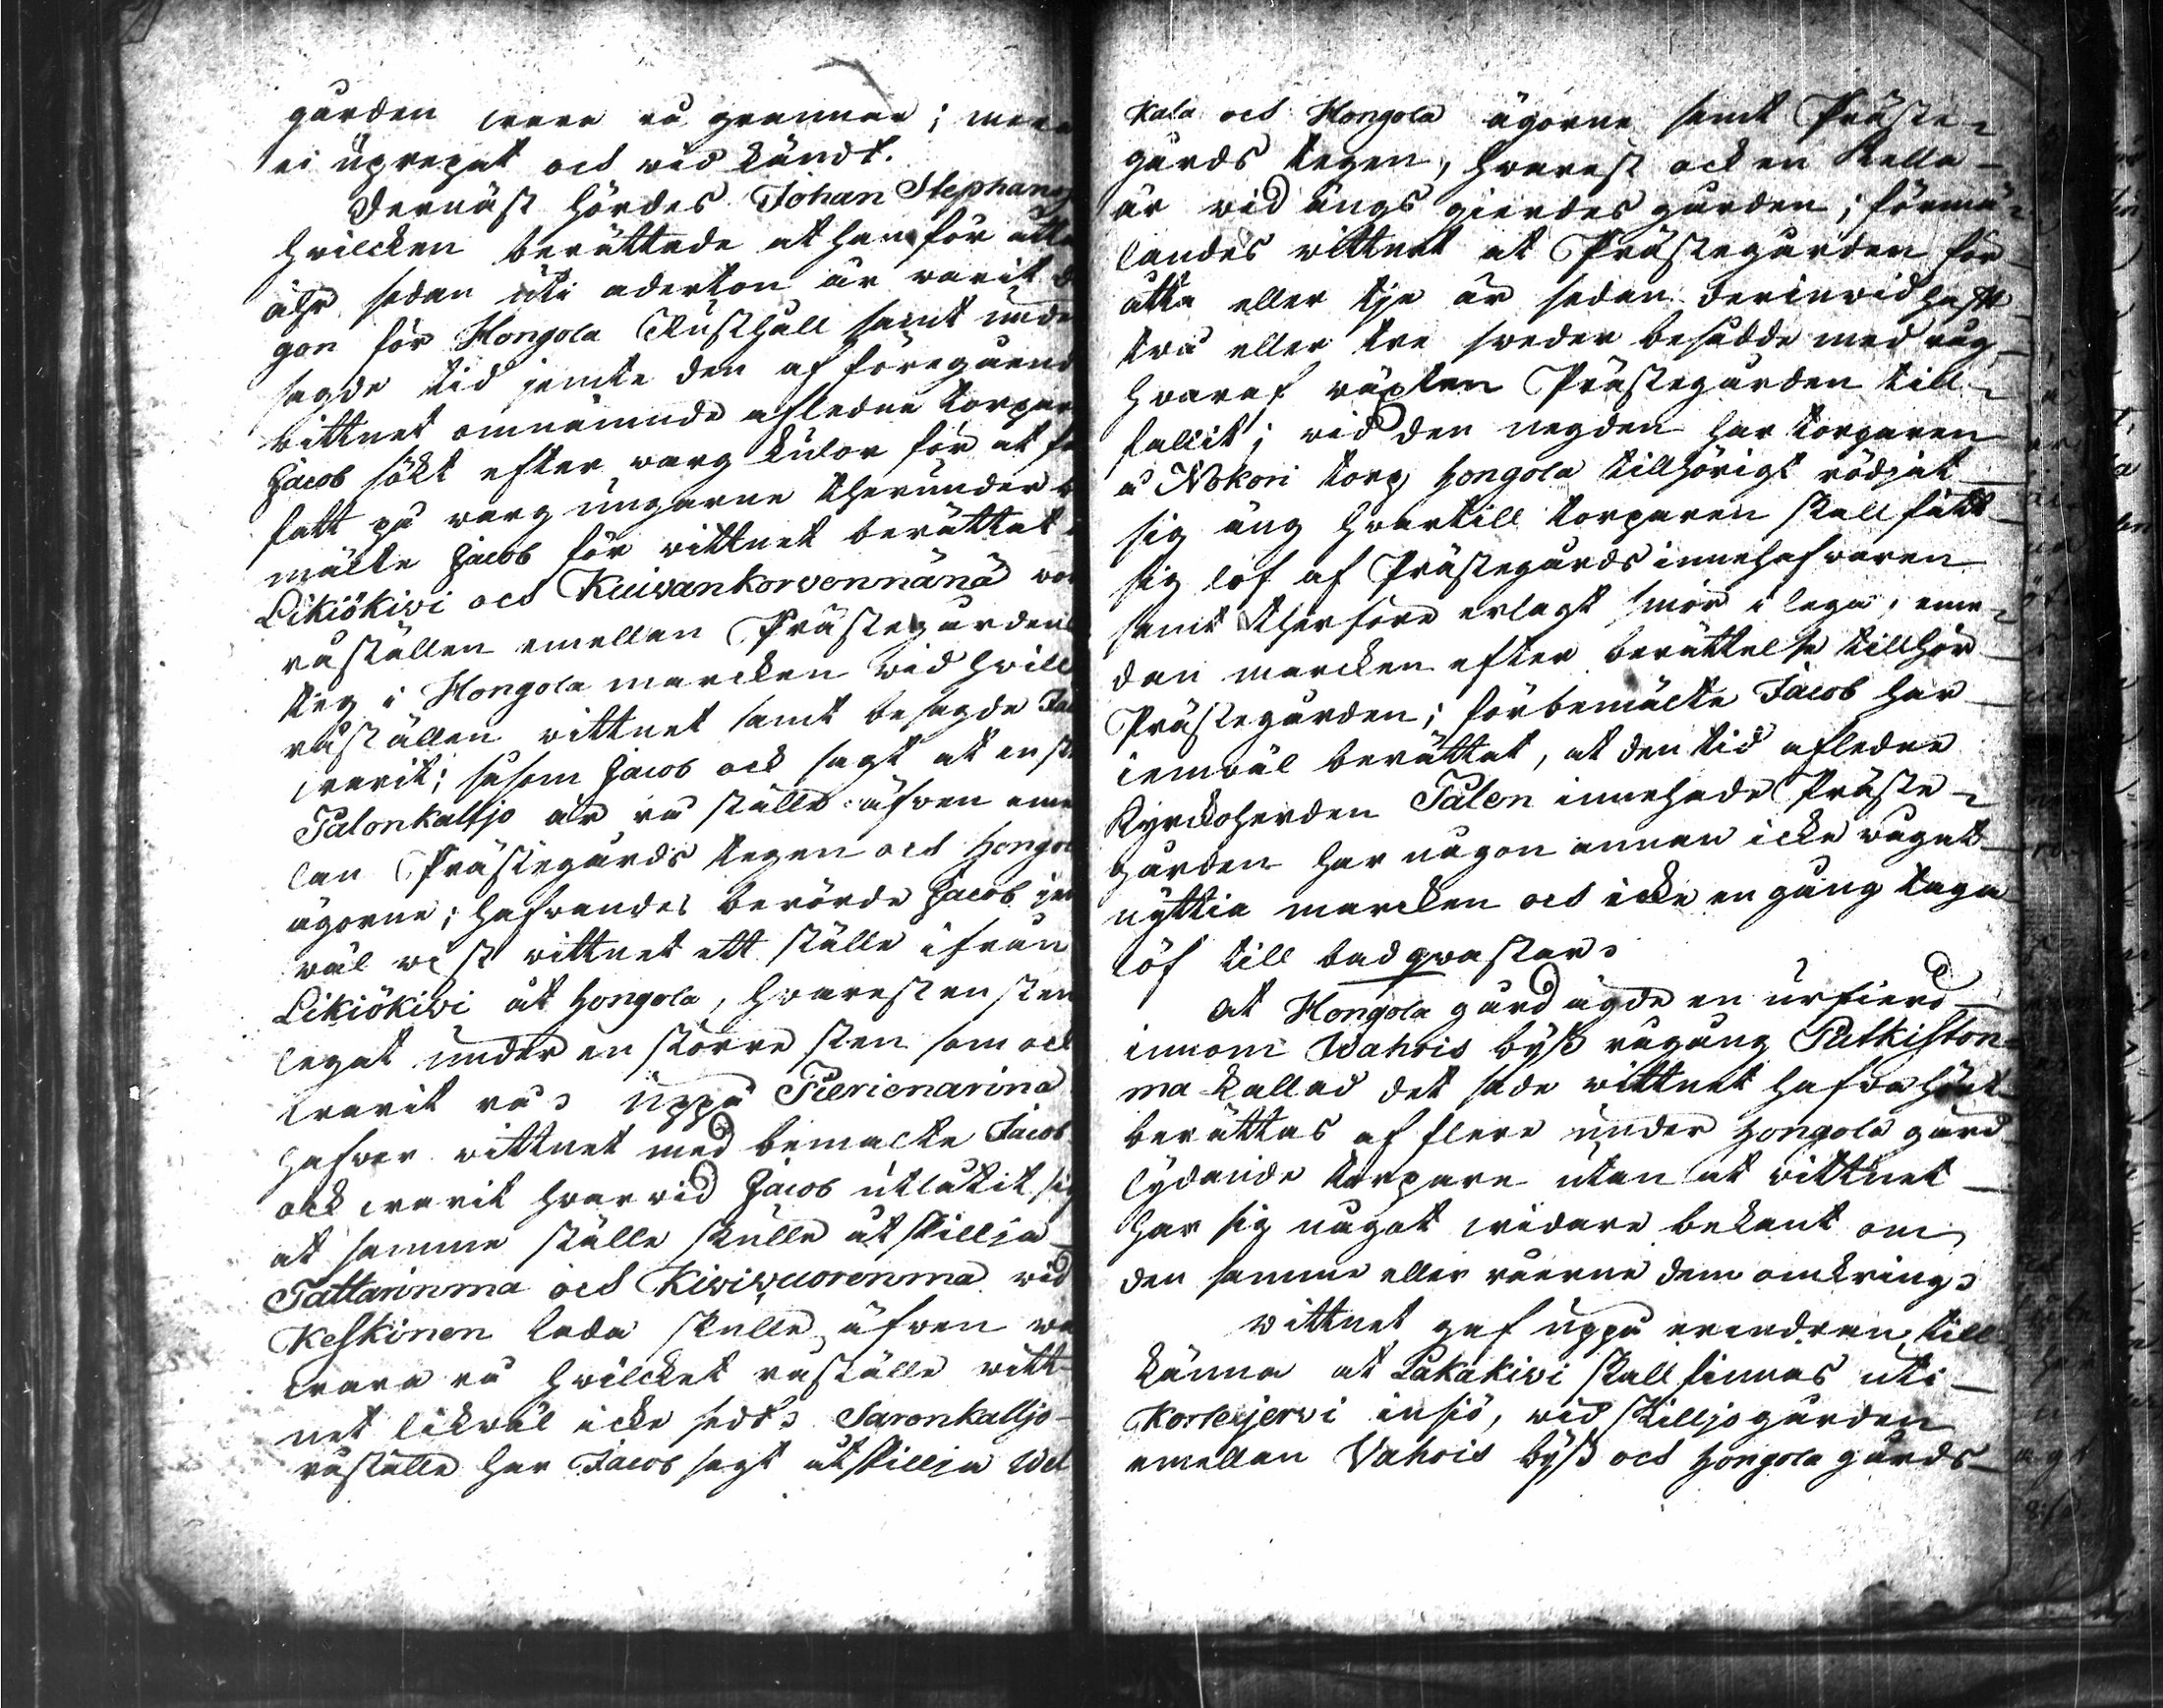 gården wara rå grannar; men
ei uprepat och wid kändt.
Dernäst hördes Johan Stephans
hwilcken berättade at han för åtta
åhr sedan uti aderton år warit
gon för Hongola Rusthåll samt unde
sagde tid jemte den af föregåend
wittnet omnämnde afledne torpar
Jacob sökt efter warg kulor för at få
fatt på warg ungarne therunder
mälte Jacob för wittnet berättat
Likiökiwi och Kuiwankorwennänä wa
råställen emellan Prästegården
teg i Hongola marcken wid hwilc
råställen wittnet samt besagde Jac
warit; såsom Jacob ock sagt at en st
Talonkalljo är rå ställe äfwen eme
lan Prästegårds tegen och Hongola
ägorne; hafwandes berörde Jacob jem
wäl wist wittnet ett ställe ifrån
Likiökiwi åt Hongola, hwarest en sten
legat under en större sten som ock
warit rå; uppå Pierienarina
hafwer wittnet med bemälte Jacob
ock warit hwarwid Jacob utlåtit sig
at samme ställe skulle åtskillja
Tattarinma och Kiwiwuorenma wid
Keskinen lada skulle äfwen
wara rå hwilcket råställe witt-
net likwäl icke sedt; Saronkalljo
råställe har Jacob sagt åtskillja Wel
kala och Hongola ägorne samt Präste-
gårds tegen, hwarest ock en Kella
är wid ängs giärdes gården; förmä-
landes wittnet at Prästegården för
åtta eller tje år sedan derinwid haft
twå eller tre sweder besådde med råg
hwaraf wäxten Prästegården till-
fallit; wid den negden har torparen
å Nokori torp Hongola tillhörigt rödjat
sig äng hwartill torparen skall fådt
sig lof af Prästegårds innehafwaren
samt therföre erlagt smör i lega, eme-
dan marcken efter berättelse tillhör
Prästegården; förbemälte Jacob har
jemwäl berättat, at den tid afledne
Kyrckoherden Palen innehade Präste-
gården har någon annan icke wågat
nyttia marcken och icke en gång taga
löf till badqwastar;
At Hongola gård ägde en urfierd
innom Wahois byß rågång Putkiston-
ma kallad det sade wittnet hafwa hördt
berättas af flere under Hongola gård
lydande torpare utan at wittnet
har sig något widare bekant om
den samme eller råerne dem omkring;
Wittnet gaf uppå erindran till
känna at Lakakiwi skall finnas uti
Kortejerwi insiö, wid skilljogården
emellan Vahois byß och Hongola gårds